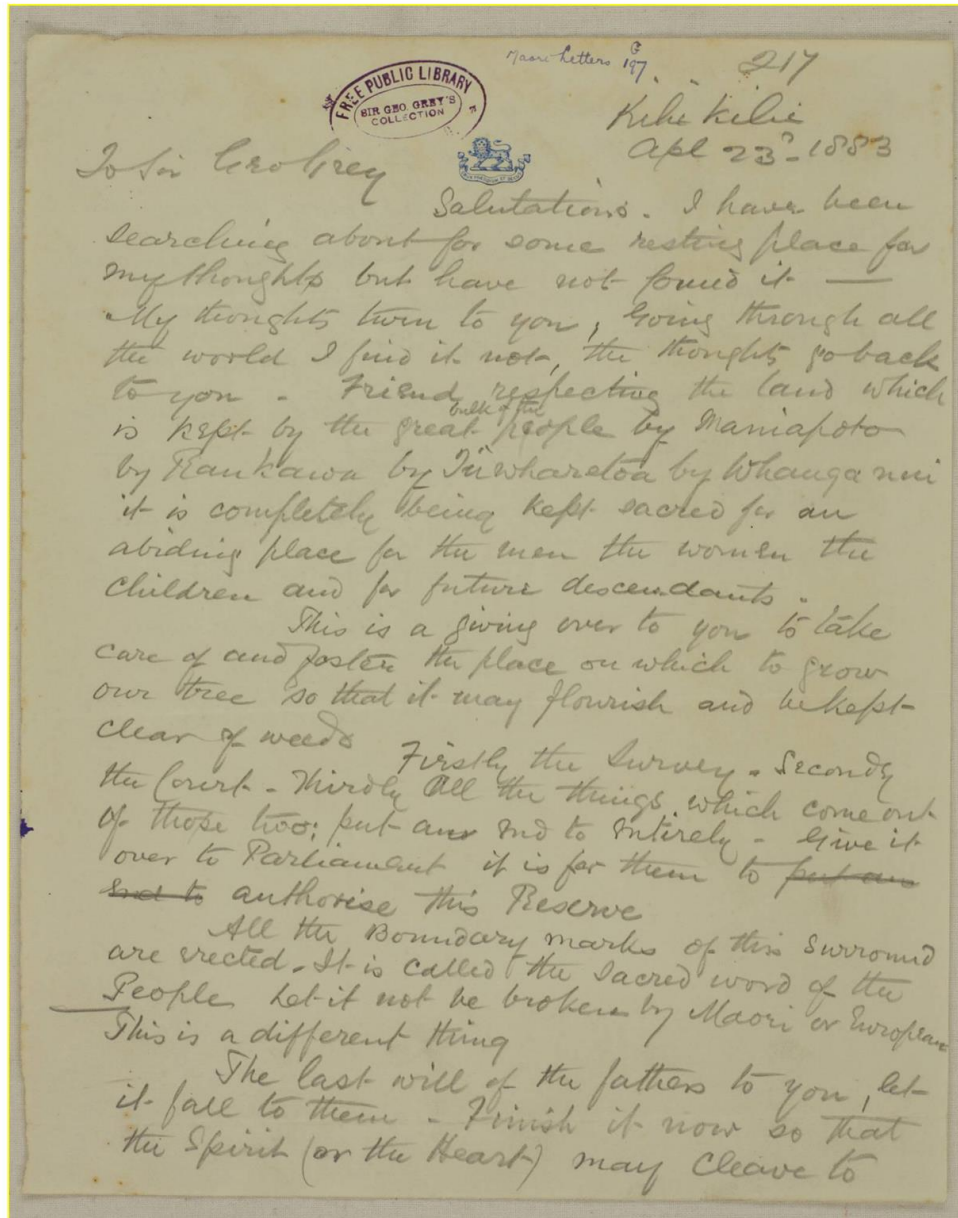 Maori Letters G
197
217
FREE PUBLIC LIBRARY
SIR GEO. GREY'S
COLLECTION
Kihi Kihi
Apl 23d - 1883
To Sir Geo Grey
Salutations. I have been
searching about for some resting place for
my thoughts but have not found it —
My thoughts turn to you, Going through all
the world I find it not, the thoughts go back
to you - Friend respecting the land which
bulk of the
is kept by the great people by Maniapoto
by Raukawa by Tuwharetoa by Whanganui
it is completely being kept sacred for an
abiding place for the men the women the
children and for future descendants.
This is a giving over to you to take
care of and foster the place on which to grow
our tree so that it may flourish and be kept
clear of weeds Firstly the Survey - Secondly
the Court - Thirdly All the things which come out
of those two; put an end to entirely - Give it
over to Parliament it is for them to put an
end to authorise this Reserve
All the Boundary marks of this Surround
are erected - It is called the Sacred word of the
People Let it not be broken by Maori or European
This is a different thing
The last will of the fathers to you, let
it fall to them - Finish it now so that
the Spirit (or the Heart) may cleave to